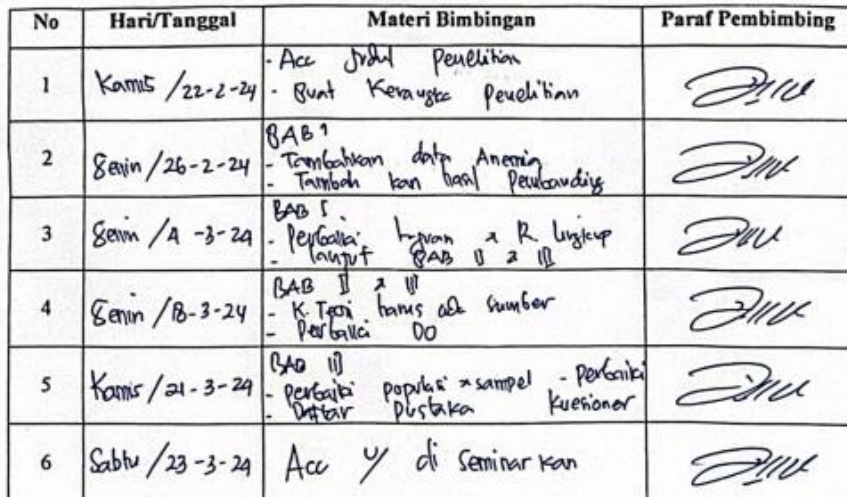 No Hari/Tanggal Materi Bimbingan Paraf Pembimbing
1 Kamis / 22-2-24
- Acc Judul Penelitian
- Buat Kerangka Penelitian
2 Senin / 26-2-24
BAB 1
- Tambahkan data Anemia
- Tambah kan hasil Pembanding
3 Senin / 4 -3-24
BAB I
- Perbaiki tujuan & R. lingkup
- lanjut BAB II & III
4 Senin / 18-3-24
BAB II & III
- K. Teori harus ada Sumber
- Perbaiki DO
5 Kamis / 21-3-24
BAB III
- perbaiki populasi & sampel - perbaiki
- Daftar pustaka kuesioner
6 Sabtu / 23-3-24
Acc u/ di seminar kan